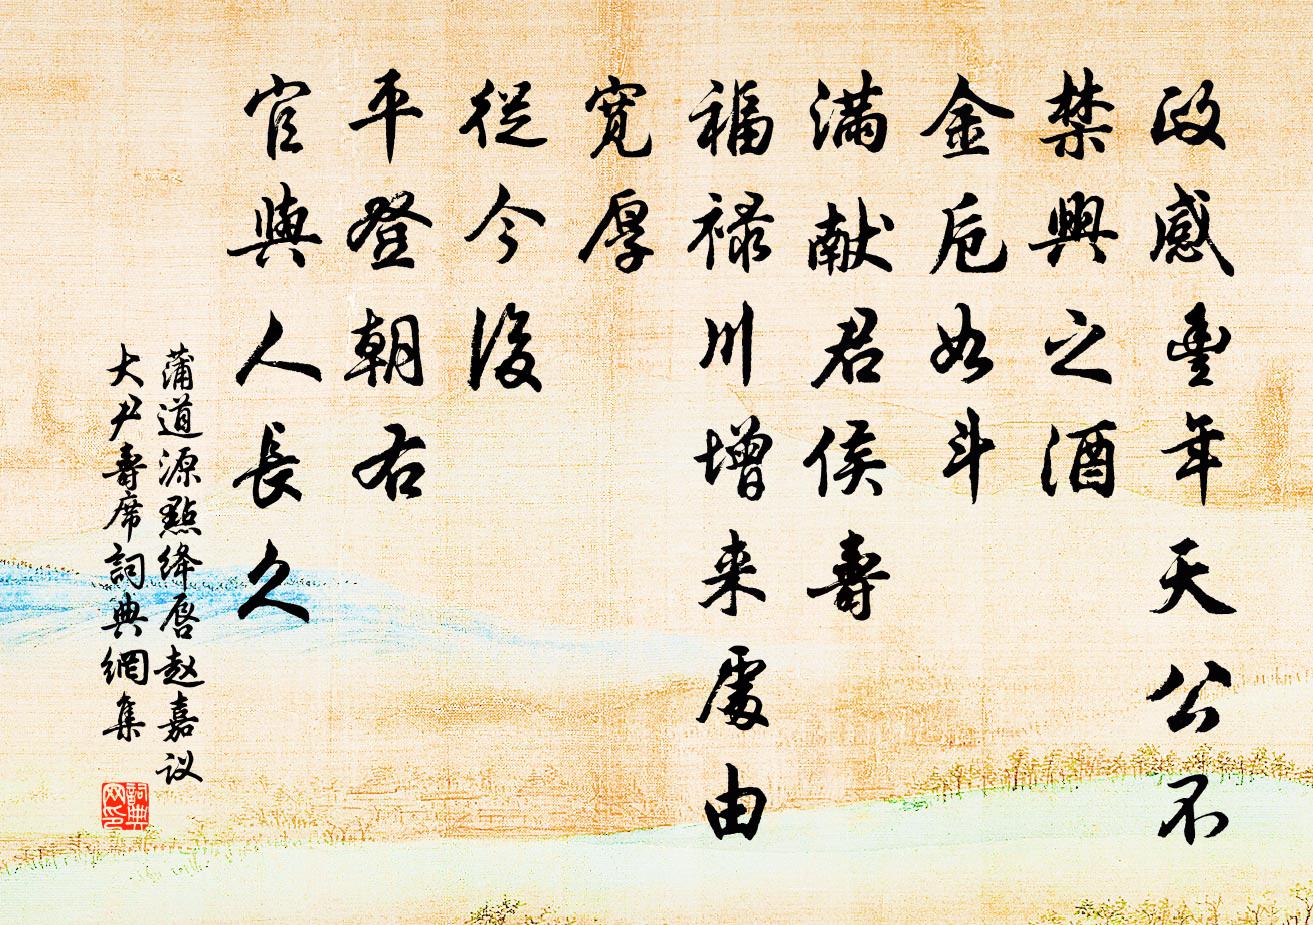 政感豊年天公不
禁興之酒
金卮如斗
満献君侯壽
福禄川增来處由
寛厚
從今後
平登朝右
官與人長久
蒲道源點绛唇赵嘉议
大尹壽席詞典網集
詞典网印